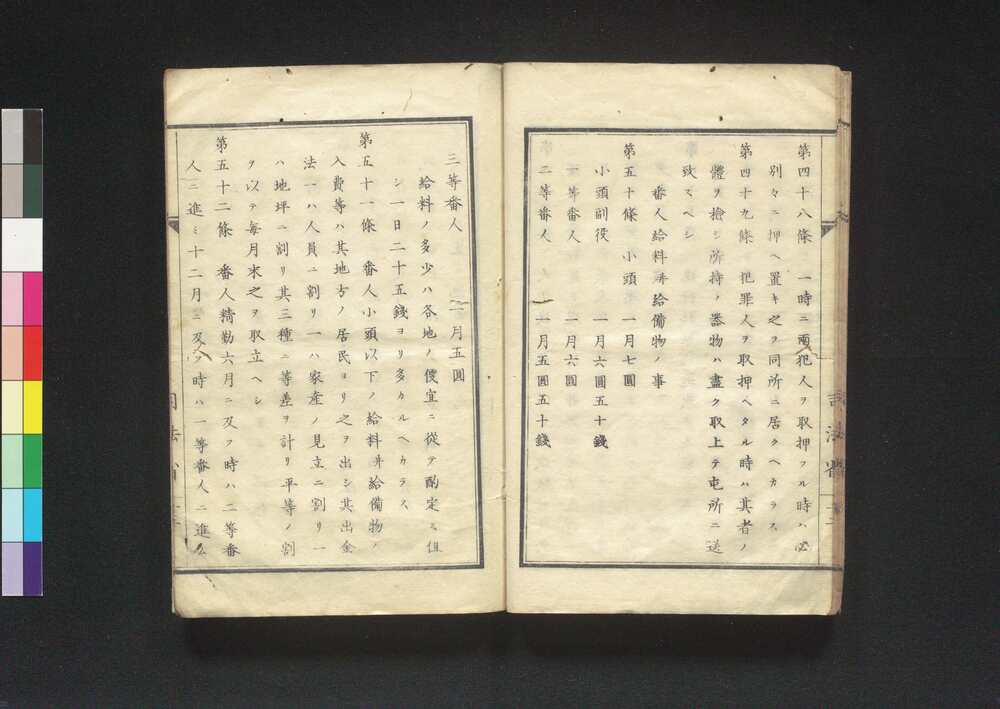 第四十八條　一時ニ兩犯人ヲ取押フル時ハ必
別々ニ押ヘ置キ之ヲ同所ニ居クヘカラス
第四十九條　犯罪人ヲ取押ヘタル時ハ其者ノ
體ヲ撿シ所持ノ器物ハ盡ク取上テ屯所ニ送
致スベシ
番人給料幷給備物ノ事
第五十條　小頭　一月七圓
小頭副役　一月六圓五十錢
一等番人　一月六圓
二等番人　一月五圓五十錢
三等番人　一月五圓
給料ノ多少ハ各地ノ便宜ニ從テ酌定ス但
シ一日二十五錢ヨリ多カルヘカラス
第五十一條　番人小頭以下ノ給料幷給備物ノ
入費等ハ其地方ノ居民ヨリ之ヲ出シ其出金
法一ハ人員ニ割リ一ハ家産ノ見立ニ割リ一
ハ地坪ニ割リ其三種ニ等差ヲ計リ平等ノ割
ヲ以テ毎月末之ヲ取立ヘシ
第五十二條　番人精勤六月ニ及フ時ハ二等番
人ニ進ミ十二月ニ及フ時ハ一等番人ニ進ム
司法省